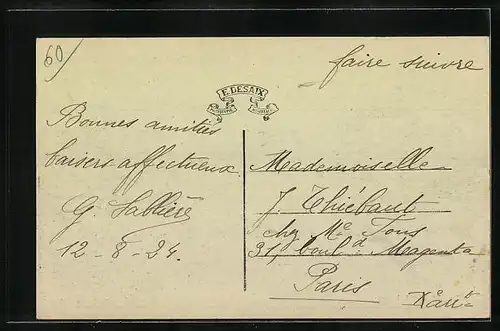 60
faire suivre
E. DESAIX
Bonnes amitiés
baisers affectueux
G. Sablière
12-8-24.
Mademoiselle
J. Thiébaut
chez Me Tous
31, boul d Magenta
Paris